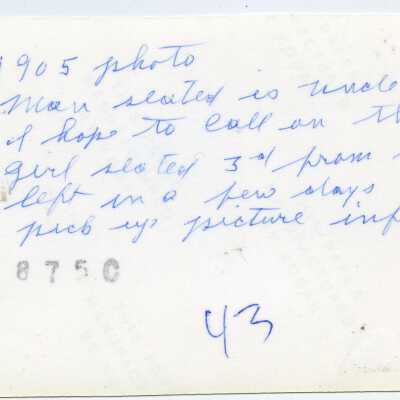 1905 photo
Man seated is uncle
I hope to call on th
girl seated 3d from
left in a few days
pick up picture inf
875C
43